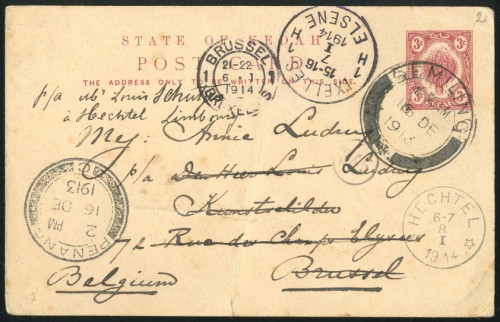 2
STATE OF KEDAH
POST CARD
THE ADDRESS ONLY TO BE WRITTEN ON THIS SIDE
3c 3c
BRUSSEL
21-22
6 I
1914
1 1
BRUXELLES
IXELLES
15-16
7
I
1914
ELSENE
1 H
H 1
SEMLING
16 DE
1913
p/a Mr Louis
à Hechtel Limbourg
Mej: Annie Ludwig
p/a den Heer Louis Ludwig
Kunstschilder
72 Rue des Champs Elysees
Brussel
Belgium
PENANG
2 PM
16 DE
1913
HECHTEL
6-7
8
I
1914
2